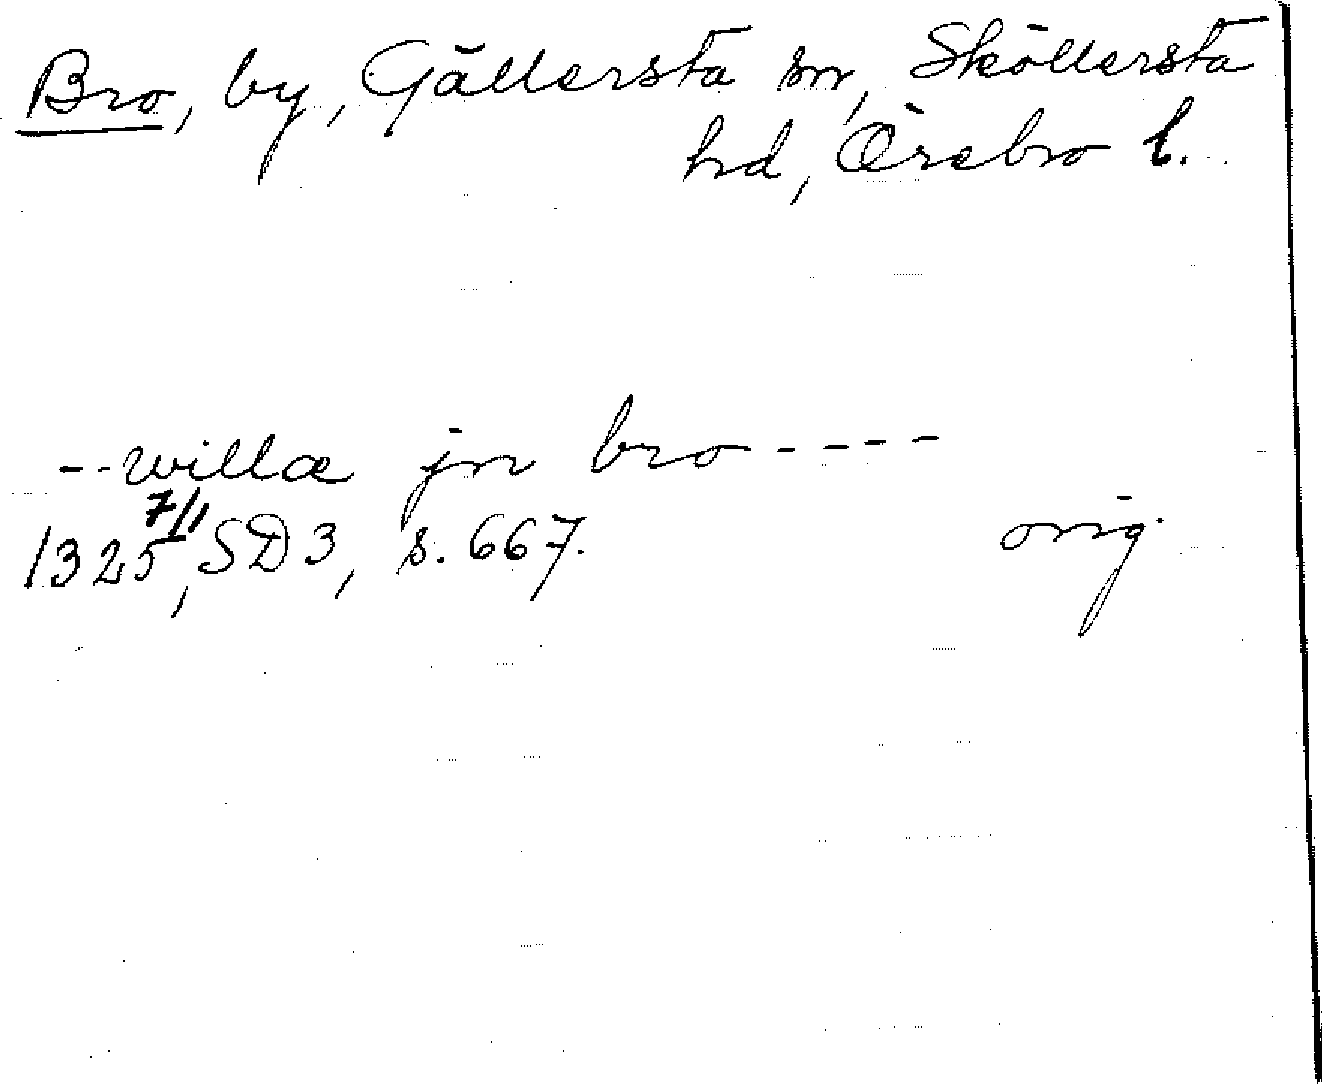 Bro, by, Gällersta sn, Sköllersta
hd, Örebro l.
--willæ jn bro ----
1325 7/11, SD3, s. 667. orig.